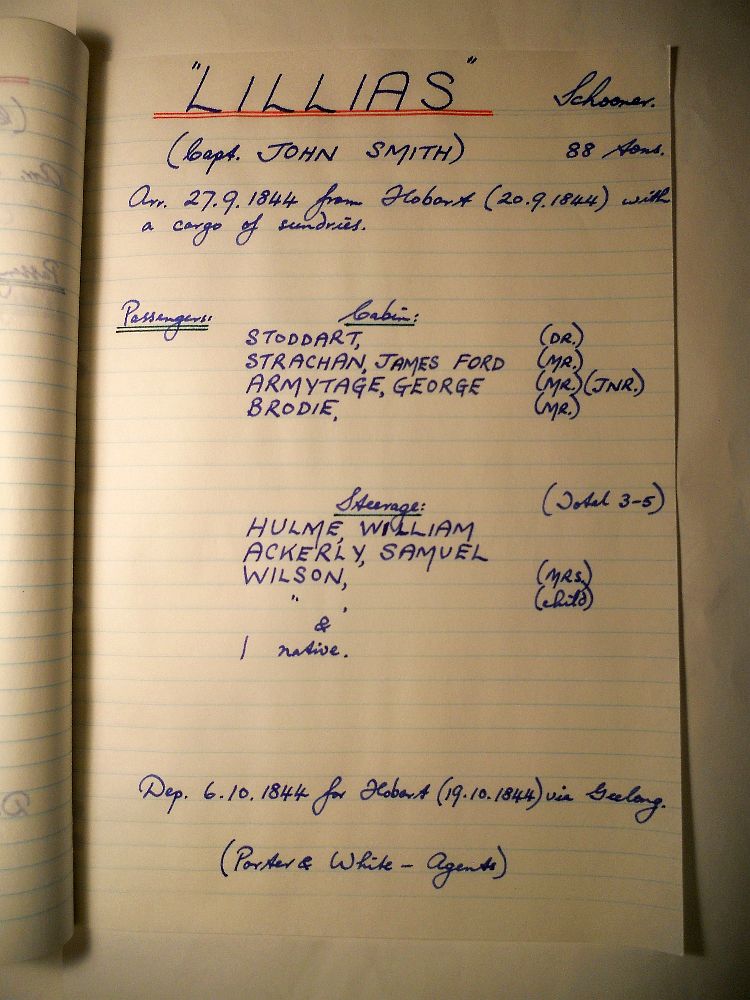 "LILLIAS" Schooner.
(Capt. JOHN SMITH) 88 tons.
Arr. 27.9.1844 from Hobart (20.9.1844) with
a cargo of sundries.
Passengers: Cabin:
STODDART, (DR.)
STRACHAN, JAMES FORD (MR.)
ARMYTAGE, GEORGE (MR.) (JNR.)
BRODIE, (MR.)
Steerage: (Total 3-5)
HULME, WILLIAM
ACKERLY, SAMUEL
WILSON, (MRS.)
" , (child)
&
1 native.
Dep. 6.10.1844 for Hobart (19.10.1844) via Geelong.
(Porter & White - Agents)